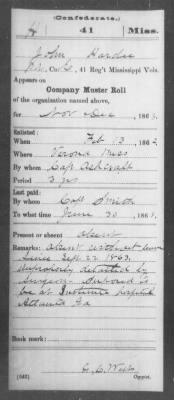 (Confederate.)
H 41 Miss.
John Hardee
Pvt, Co. G, 41 Reg't Mississippi Vols.
Appears on
Company Muster Roll
of the organization named above,
for Nov & Dec, 1863.
Enlisted:
When Feb 13, 1862
Where Verona Miss
By whom Capt Ashcraft
Period 3 yrs
Last paid:
By whom Capt Smith
To what time June 30, 1863.
Present or absent Absent
Remarks: Absent without leave
since Sept 22 1863.
detailed by
Surgeon. Supposed to
be at Institute hospital
Atlanta Ga
Book mark:
(642) Copyist.